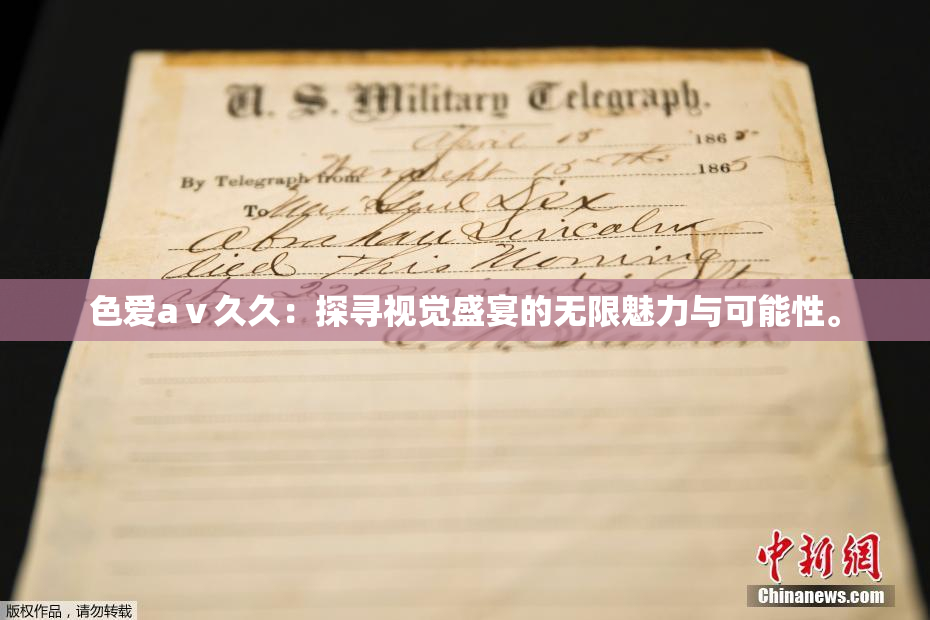 U. S. Military Telegraph.
April 15 1865
By Telegraph from War Dept 15th 1865
To Maj Genl Dix
Abraham Lincoln
died This Morning
at 22 minutes after
色爱aⅴ久久：探寻视觉盛宴的无限魅力与可能性。
E. M. Stanton
中新网
Chinanews.com
版权作品，请勿转载